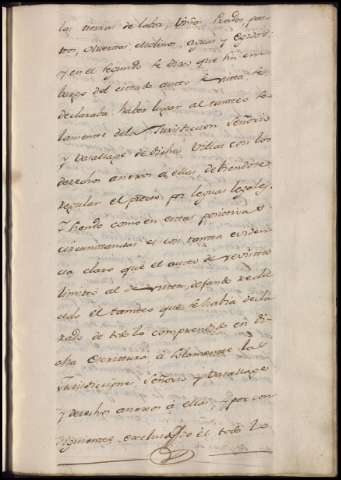 las tierras de labor, Viñas, Prados, pas-
tos, Huertas Molino, aguas y Egidos:
y en el segundo se dixo que sin em-
bargo del citado auto de vista se
declaraba haber lugar al tanteo so-
lamente de la Jurisdiccion, Señorio
y Vasallage de dichas Villas con los
derechos anexos a ellas, debiendose
regular el precio por leguas legales.
Y siendo como en estas positivas
circunstancias es con tanta eviden-
cia claro que el auto de revista
limitó al de vista, defando redu-
cido el tanteo que se habia decla-
rado de todo lo comprendido en di-
cha Escritura a solamente la
Jurisdiccion, Señorio y Vasallage
y derechos anexos a ellas, y por con-
siguiente excluido el todo